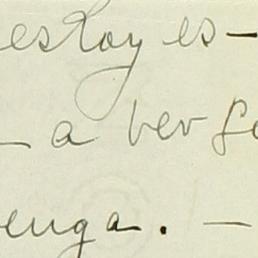 estoy es-
- a ver
enga. -